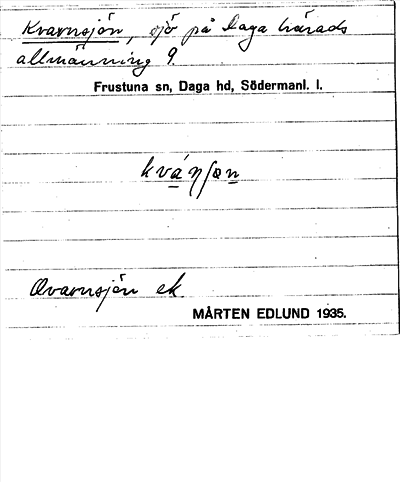 Kvarnsjön, sjö på Daga härads
allmänning 9.
Frustuna sn, Daga hd, Södermanl. l.
kvá̱ηʃøṉ
Qvarnsjön ek.
MÅRTEN EDLUND 1935.